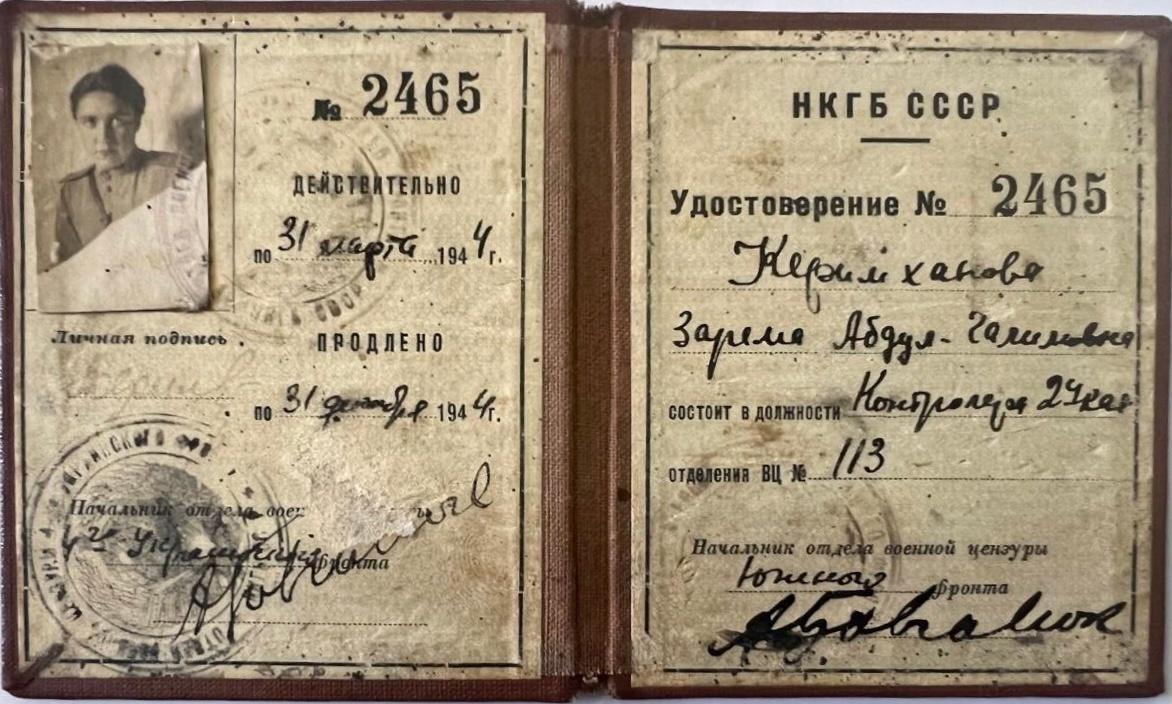 № 2465
ДЕЙСТВИТЕЛЬНО
по 31 марта 1944г.
Личная подпись
ПРОДЛЕНО
по 31 декабря 1944г.
Начальник отдела воен
4 Украинского фронта
НКГБ СССР
Удостоверение № 2465
Керимханова
Зарема Абдул-Галимовна
состоит в должности Контролера
отделения ВЦ № 113
Начальник отдела военной цензуры
Южного фронта